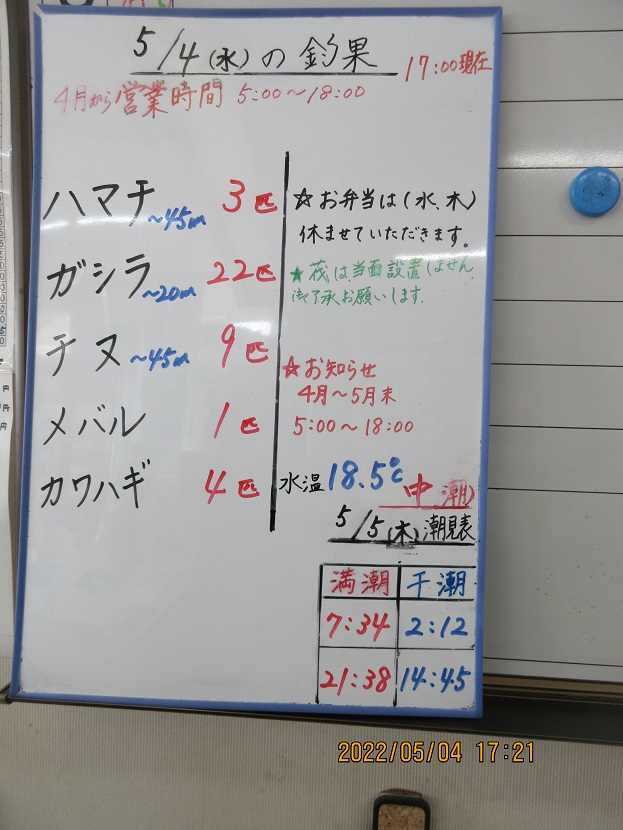 5/4(水)の釣果
17:00現在
4月から営業時間 5:00〜18:00
ハマチ 〜45cm 3匹
ガシラ 〜20cm 22匹
チヌ 〜45cm 9匹
メバル 1匹
カワハギ 4匹
☆お弁当は(水、木)
休ませていただきます。
★筏は当面設置しません
御了承お願いします。
☆お知らせ
4月〜5月末
5:00〜18:00
水温18.5℃
中潮
5/5(木)潮見表
満潮 干潮
7:34 2:12
21:38 14:45
2022/05/04 17:21